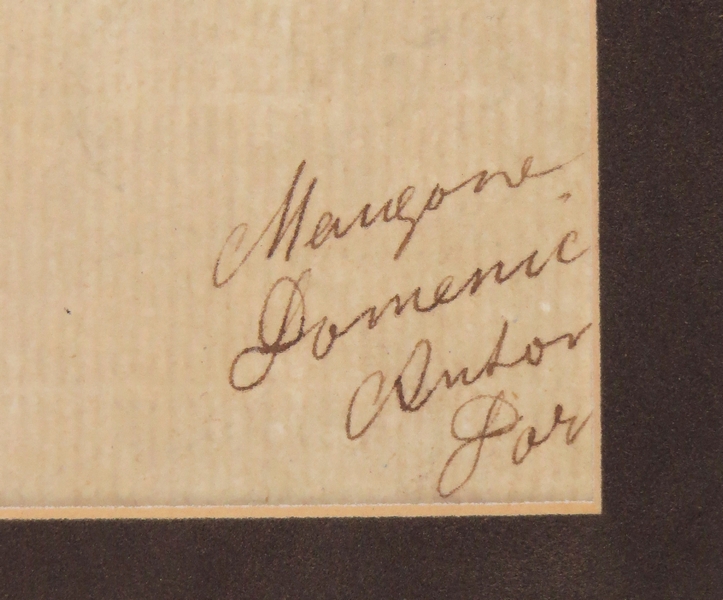 Mangone
Domenic
Anton
Dor